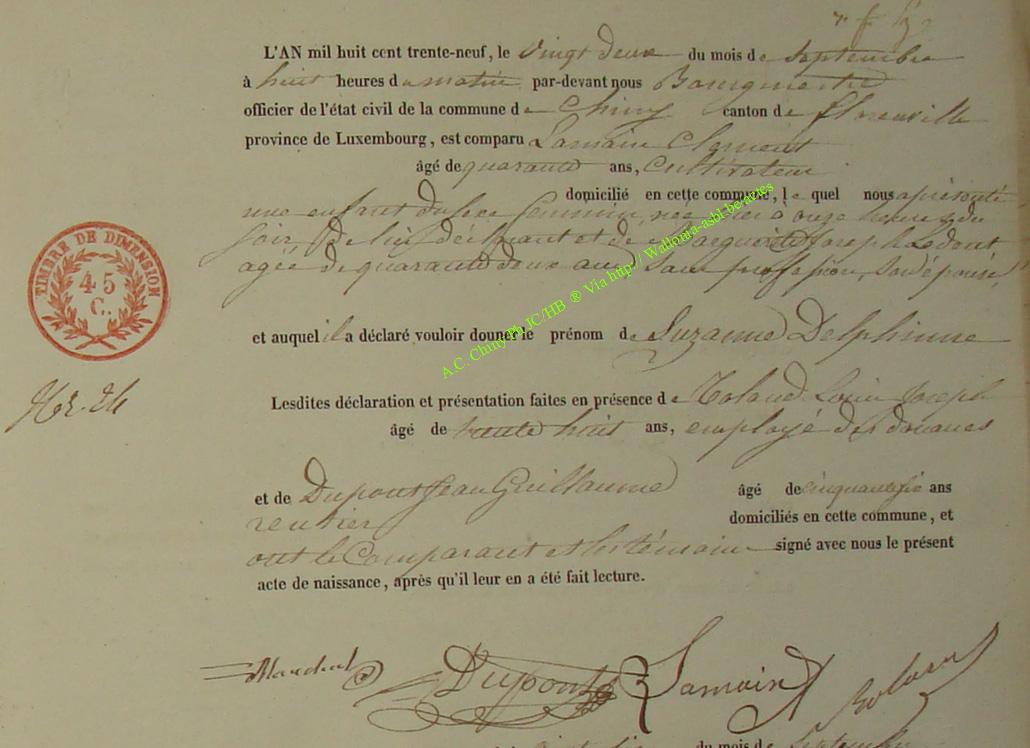 L'AN mil huit cent trente-neuf, le vingt deux du mois de septembre
à huit heures du matin par-devant nous Bourgmestre
officier de l'état civil de la commune de Chiny canton de florenville
province de Luxembourg, est comparu Lamain Clément
âgé de quarante ans, Cultivateur
domicilié en cette commune, le quel nous a présenté
une enfant du sexe féminin, née hier à onze heures du
soir, de lui déclarant et de Marguerite Joseph Ledent
agée de quarante deux ans Sans profession, son épouse,
et auquel il a déclaré vouloir donner le prénom de Suzanne Delphinne
Lesdites déclaration et présentation faites en présence de Roland Louis Joseph
âgé de trente huit ans, employé des douanes
et de Dupont Jean Guillaume âgé de cinquante six ans
rentier domiciliés en cette commune, et
ont le Comparant et les témoins signé avec nous le présent
acte de naissance, après qu'il leur en a été fait lecture.
TIMBRE DE DIMENSION
45
C.
A.C. Chiny Ph JC/HB ® Via http://Wallonia-asbl-be-actes
Dupont Lamain Roland
du mois de Septembre